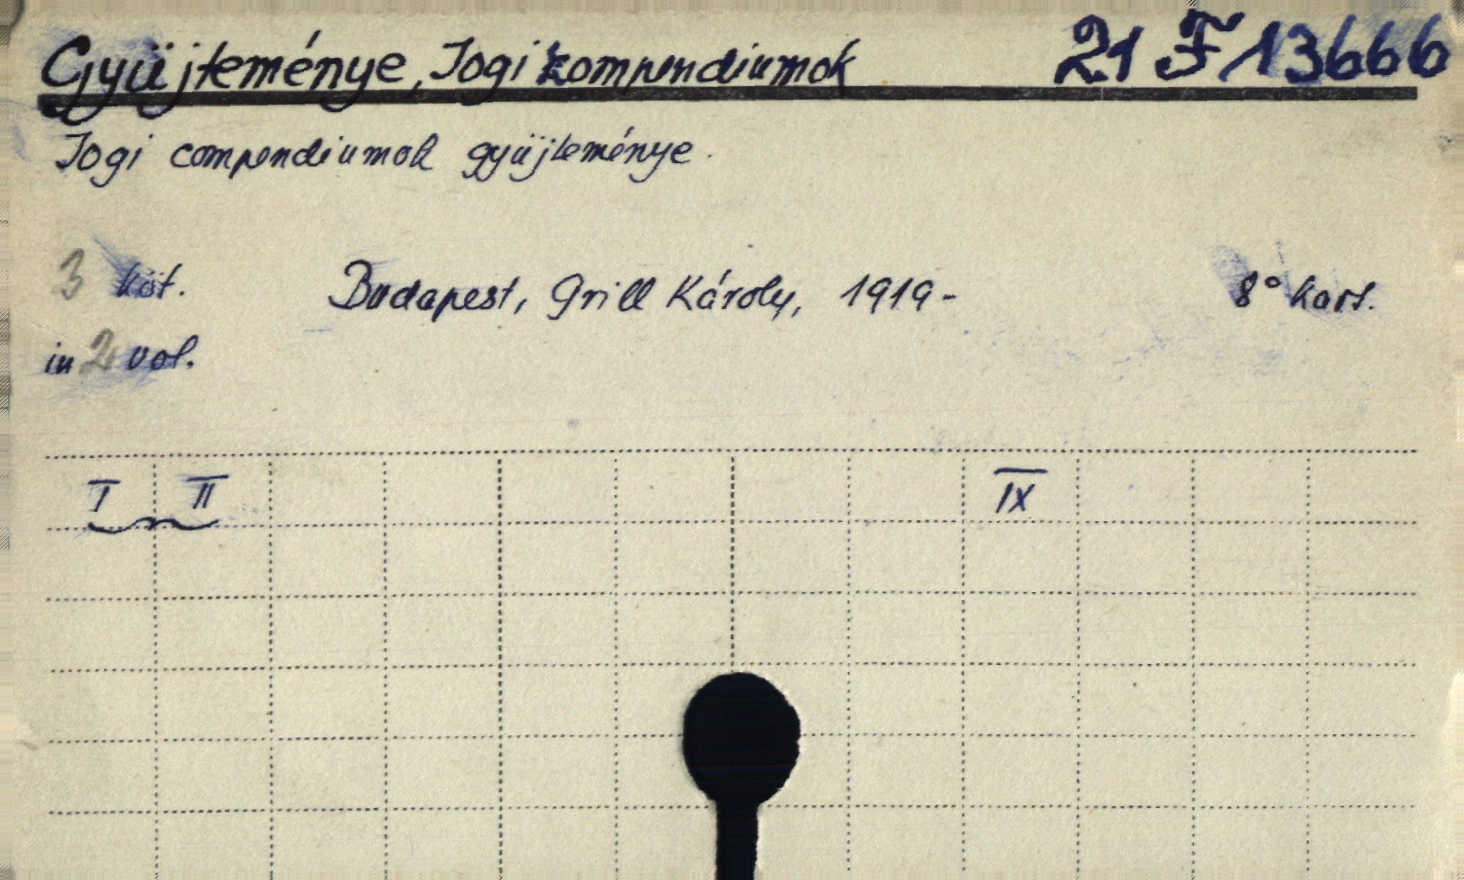 Gyüjteménye, Jogi kompendiumok 21 F 13666
Jogi compendiumok gyüjteménye.
3 köt. Budapest, Grill Károly, 1919- 8° kart.
in 2 vol.
I II IX